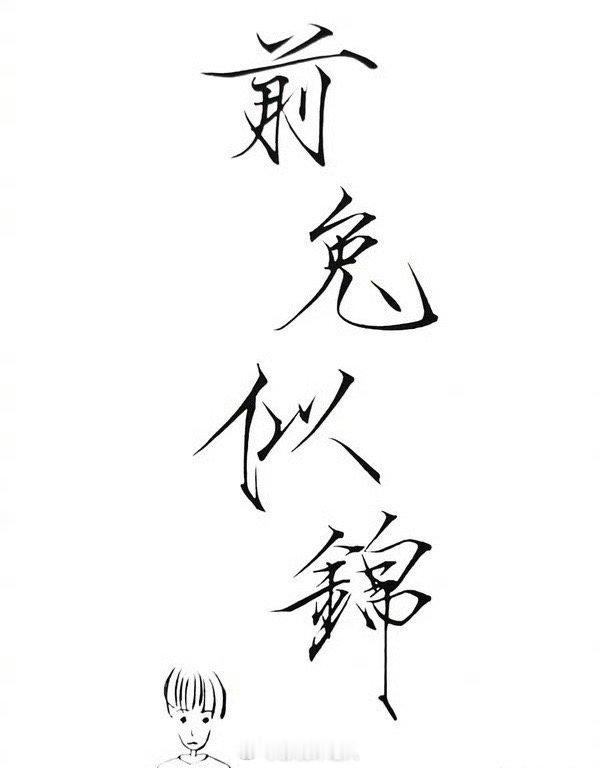 前兔似錦